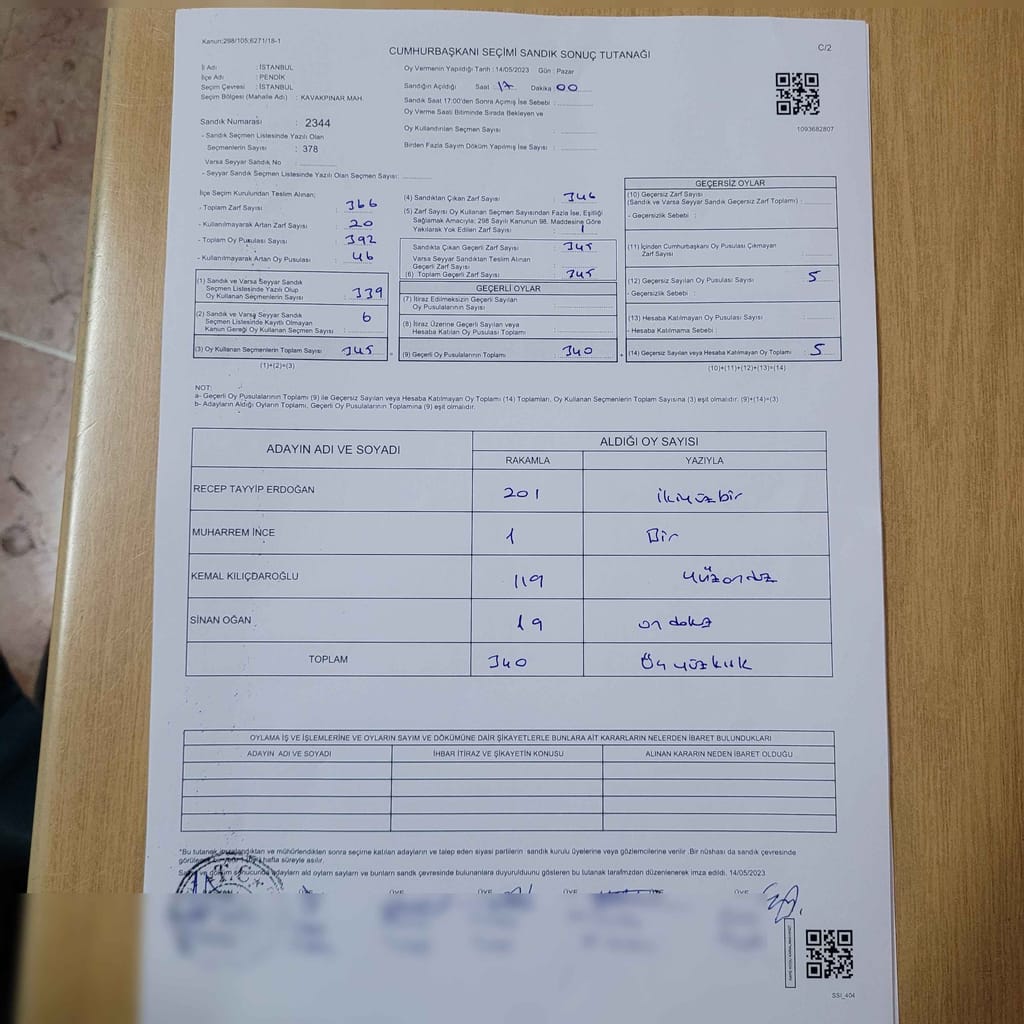 Kanun:298/105;6271/18-1
CUMHURBAŞKANI SEÇİMİ SANDIK SONUÇ TUTANAĞI
C/2
İl Adı : İSTANBUL
İlçe Adı : PENDİK
Seçim Çevresi : İSTANBUL
Seçim Bölgesi (Mahalle Adı) : KAVAKPINAR MAH.
Oy Vermenin Yapıldığı Tarih : 14/05/2023 Gün : Pazar
Sandığın Açıldığı Saat 17 Dakika 00
Sandık Saat 17:00'den Sonra Açımış İse Sebebi :
Oy Verme Saati Bitiminde Sırada Bekleyen ve
Oy Kullandırılan Seçmen Sayısı :
Birden Fazla Sayım Döküm Yapılmış İse Sayısı :
1093682807
Sandık Numarası : 2344
- Sandık Seçmen Listesinde Yazılı Olan
Seçmenlerin Sayısı : 378
Varsa Seyyar Sandık No :
- Seyyar Sandık Seçmen Listesinde Yazılı Olan Seçmen Sayısı:
İlçe Seçim Kurulundan Teslim Alınan;
- Toplam Zarf Sayısı : 366
- Kullanılmayarak Artan Zarf Sayısı : 20
- Toplam Oy Pusulası Sayısı : 392
- Kullanılmayarak Artan Oy Pusulası : 46
(1) Sandık ve Varsa Seyyar Sandık
Seçmen Listesinde Yazılı Olup
Oy Kullanan Seçmenlerin Sayısı : 339
(2) Sandık ve Varsa Seyyar Sandık
Seçmen Listesinde Kayıtlı Olmayan
Kanun Gereği Oy Kullanan Seçmen Sayısı : 6
(3) Oy Kullanan Seçmenlerin Toplam Sayısı : 345
(1)+(2)=(3)
(4) Sandıktan Çıkan Zarf Sayısı : 346
(5) Zarf Sayısı Oy Kullanan Seçmen Sayısından Fazla İse, Eşitliği
Sağlamak Amacıyla; 298 Sayılı Kanunun 98. Maddesine Göre
Yakılarak Yok Edilen Zarf Sayısı : 1
Sandıkta Çıkan Geçerli Zarf Sayısı : 345
Varsa Seyyar Sandıktan Teslim Alınan
Geçerli Zarf Sayısı :
(6) Toplam Geçerli Zarf Sayısı : 345
GEÇERLİ OYLAR
(7) İtiraz Edilmeksizin Geçerli Sayılan
Oy Pusulalarının Sayısı :
(8) İtiraz Üzerine Geçerli Sayılan veya
Hesaba Katılan Oy Pusulası Toplamı :
(9) Geçerli Oy Pusulalarının Toplamı : 340
GEÇERSİZ OYLAR
(10) Geçersiz Zarf Sayısı
(Sandık ve Varsa Seyyar Sandık Geçersiz Zarf Toplamı) :
- Geçersizlik Sebebi :
(11) İçinden Cumhurbaşkanı Oy Pusulası Çıkmayan
Zarf Sayısı :
(12) Geçersiz Sayılan Oy Pusulası Sayısı : 5
- Geçersizlik Sebebi :
(13) Hesaba Katılmayan Oy Pusulası Sayısı :
- Hesaba Katılmama Sebebi :
(14) Geçersiz Sayılan veya Hesaba Katılmayan Oy Toplamı : 5
(10)+(11)+(12)+(13)=(14)
NOT:
a- Geçerli Oy Pusulalarının Toplamı (9) ile Geçersiz Sayılan veya Hesaba Katılmayan Oy Toplamı (14) Toplamları, Oy Kullanan Seçmenlerin Toplam Sayısına (3) eşit olmalıdır. (9)+(14)=(3)
b- Adayların Aldığı Oyların Toplamı, Geçerli Oy Pusulalarının Toplamına (9) eşit olmalıdır.
ADAYIN ADI VE SOYADI
ALDIĞI OY SAYISI
RAKAMLA YAZIYLA
RECEP TAYYİP ERDOĞAN 201 ikiyüzbir
MUHARREM İNCE 1 Bir
KEMAL KILIÇDAROĞLU 119
SİNAN OĞAN 19 on dokuz
TOPLAM 340
OYLAMA İŞ VE İŞLEMLERİNE VE OYLARIN SAYIM VE DÖKÜMÜNE DAİR ŞİKAYETLERLE BUNLARA AİT KARARLARIN NELERDEN İBARET BULUNDUKLARI
ADAYIN ADI VE SOYADI İHBAR İTİRAZ VE ŞİKAYETİN KONUSU ALINAN KARARIN NEDEN İBARET OLDUĞU
*Bu tutanak imzalandıktan ve mühürlendikten sonra seçime katılan adayların ve talep eden siyasi partilerin sandık kurulu üyelerine veya gözlemcilerine verilir. Bir nüshası da sandık çevresinde
hafta süreyle asılır.
adayların ald oyların sayların ve bunların sandk çevresinde bulunanlara duyurulduunu gösteren bu tutanak tarafmzdan düzenlenerek imza edildi. 14/05/2023
T.C.
ÜYE ÜYE ÜYE ÜYE ÜYE
SSI_404